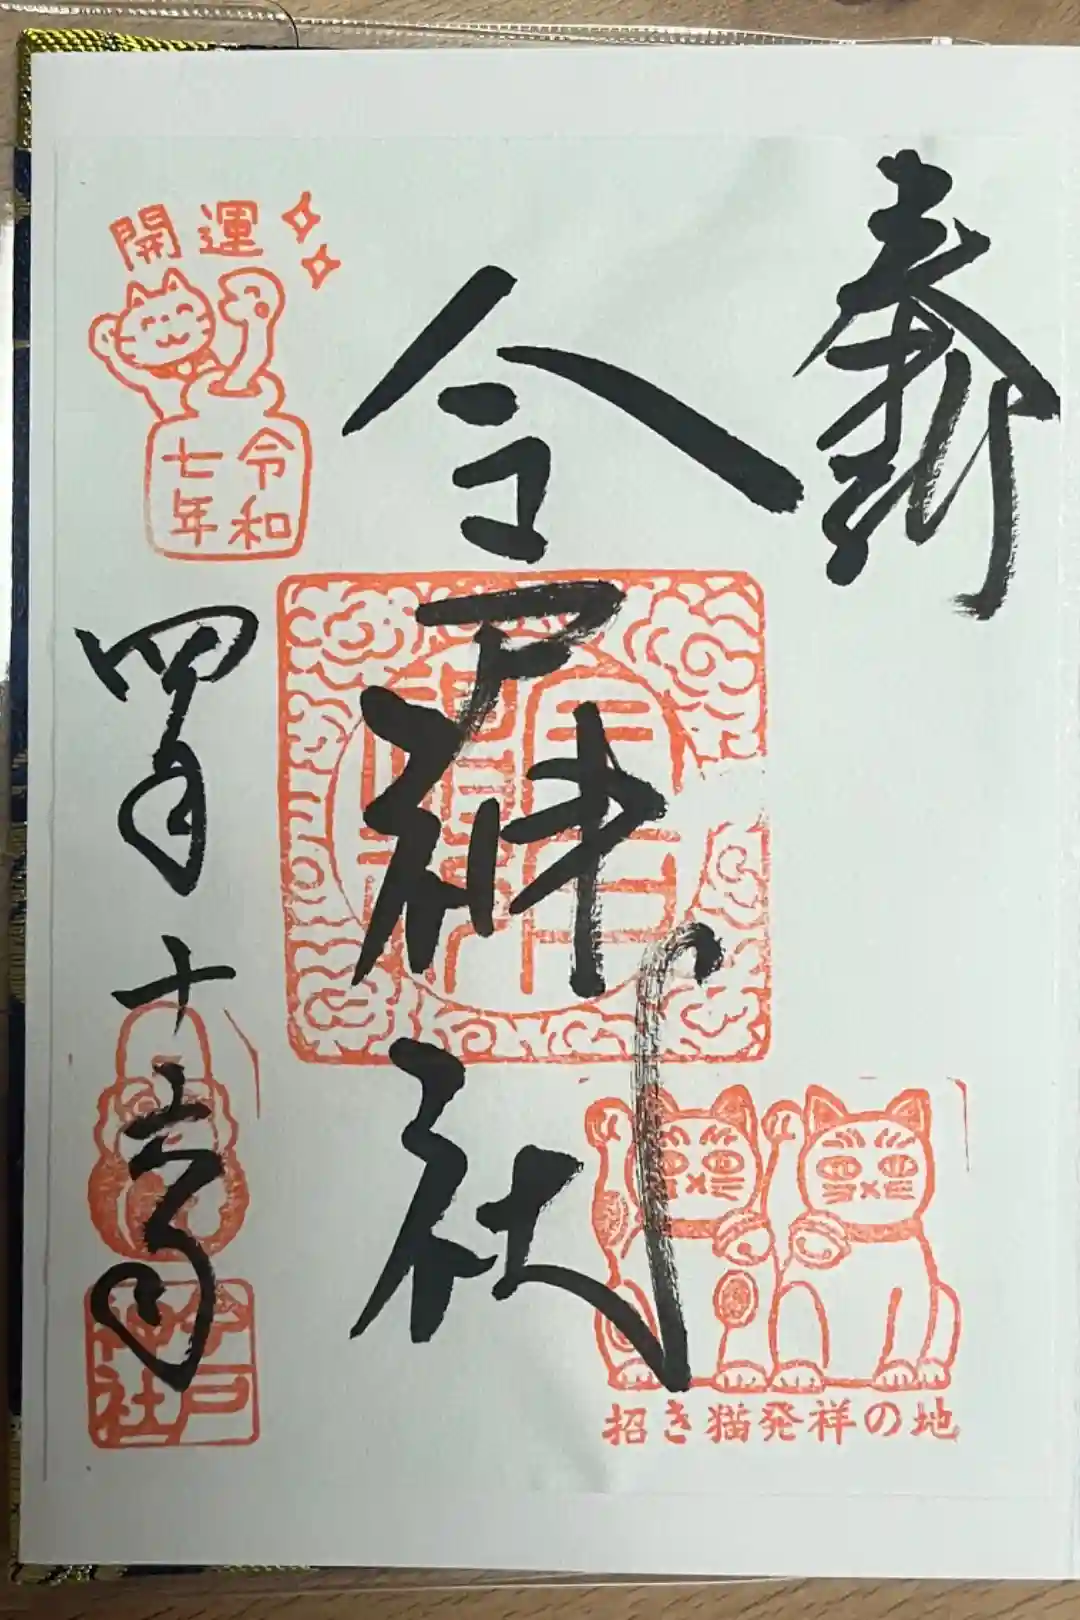 奉拝
今戸神社
開運
令和
七年
四月十六日
今戸
神社
招き猫発祥の地